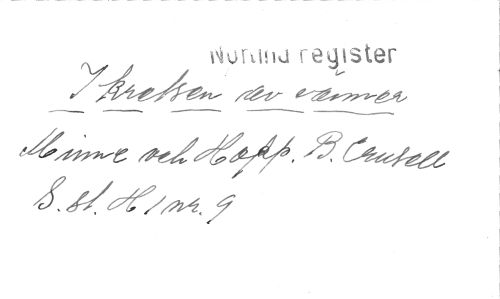 register
I kretsen av vänner
Minne och Hopp. B. Crusell
S. st. H 1 nr. 9